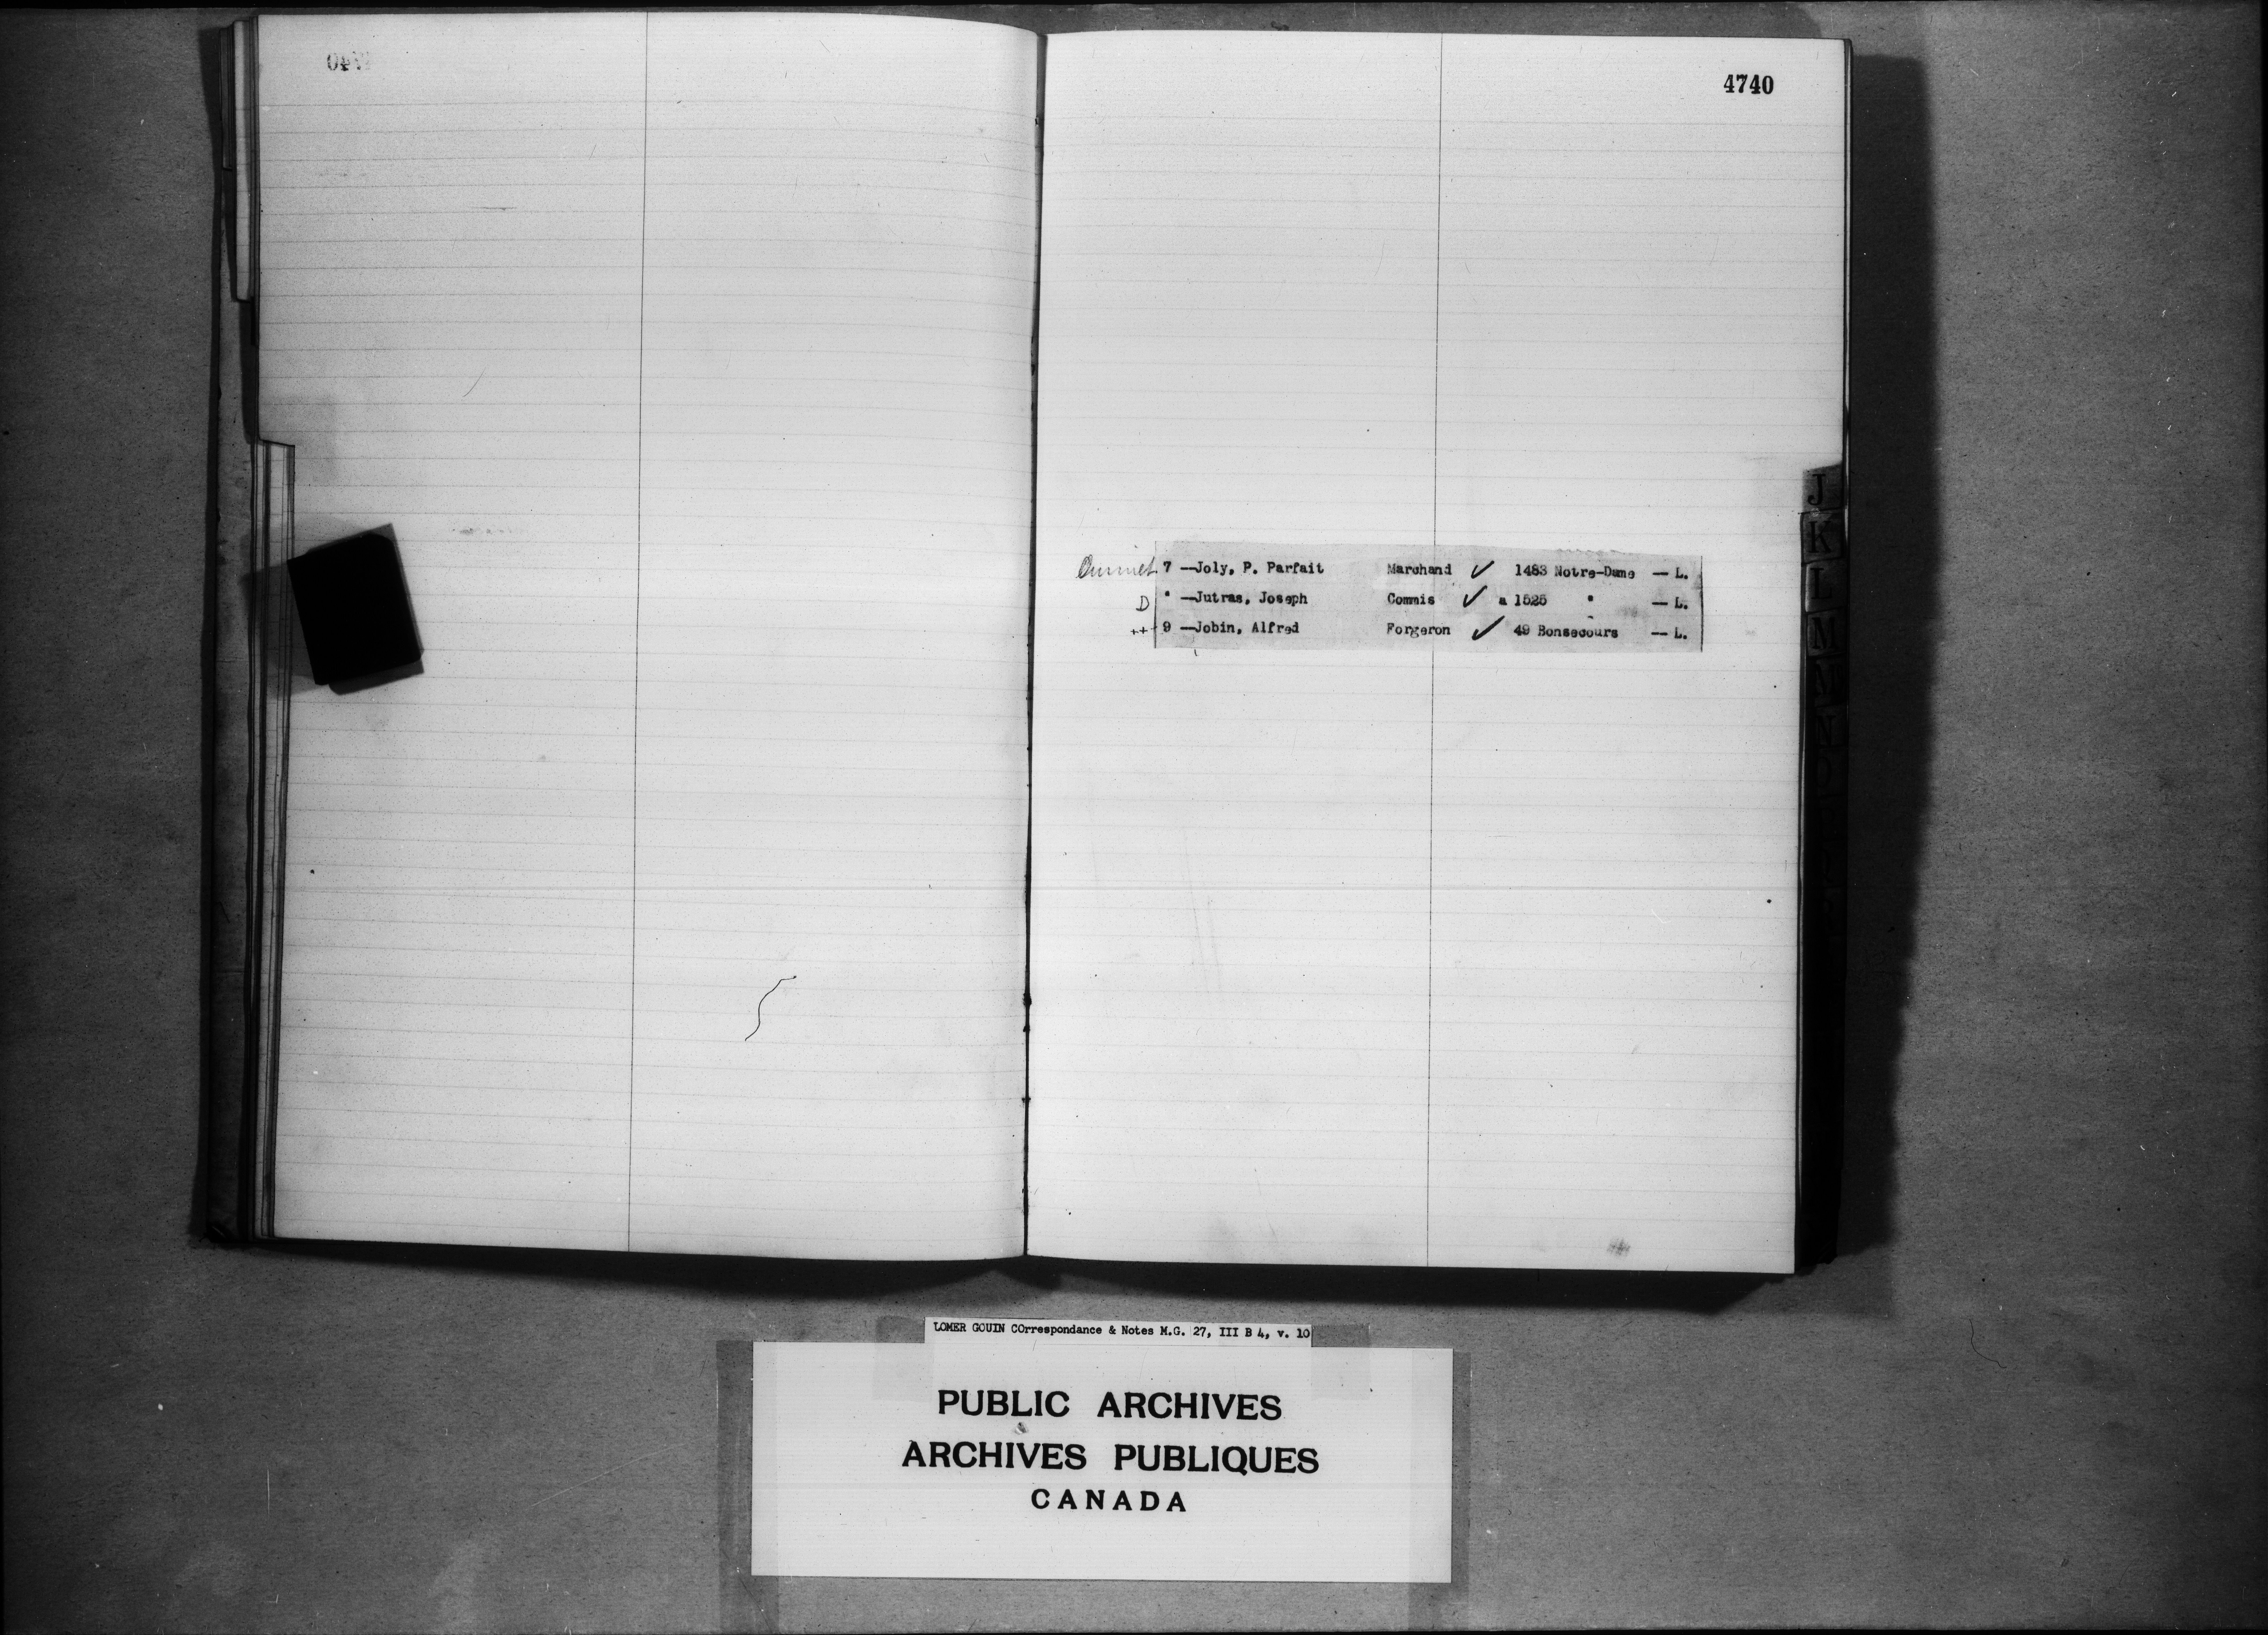 4740
7 —Joly, P. Parfait Marchand ✓ 1483 Notre-Dame — L.
D " —Jutras, Joseph Commis ✓ a 1525 " — L.
++ 9 —Jobin, Alfred Forgeron ✓ 49 Bonsecours — L.
J
K
L
M
N
O
LOMER GOUIN COrrespondance & Notes M.G. 27, III B 4, v. 10
PUBLIC ARCHIVES
ARCHIVES PUBLIQUES
CANADA